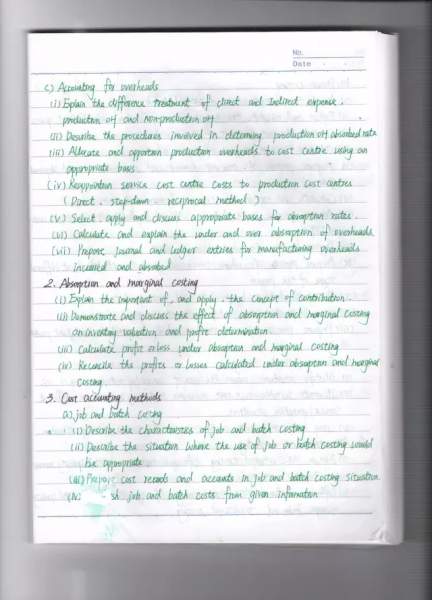 No.
Date
c) Accounting for overheads
(i) Explain the difference treatment of direct and indirect expense.
production o/h and non-production o/h
(ii) Describe the procedures involved in determing production o/h absorbed rate
(iii) Allocate and apportion production overheads to cost centre using an
appropriate basis
(iv) Reapportion service cost centre costs to production cost centres
(Direct. step-down. reciprocal method)
(v) Select. apply and discuss appropriate bases for absorption rates.
(vi) Calculate and explain the under and over absorption of overheads.
(vii) Prepare journal and ledger entries for manufacturing overheads
incurred and absorbed
2. Absorption and marginal costing
(i) Explain the important of, and apply, the concept of contribution.
(ii) Demonstrate and discuss the effect of absorption and marginal costing
on inventory valuation and profit determination.
(iii) Calculate profit or loss under absorption and marginal costing
(iv) Reconcile the profits or losses calculated under absorption and marginal
costing
3. Cost accounting methods
a) job and batch costing
(i) Describe the characteristics of job and batch costing
(ii) Describe the situation where the use of job or batch costing would
be appropriate
(iii) Prepare cost records and accounts in job and batch costing situation
(iv) sh job and batch costs from given information